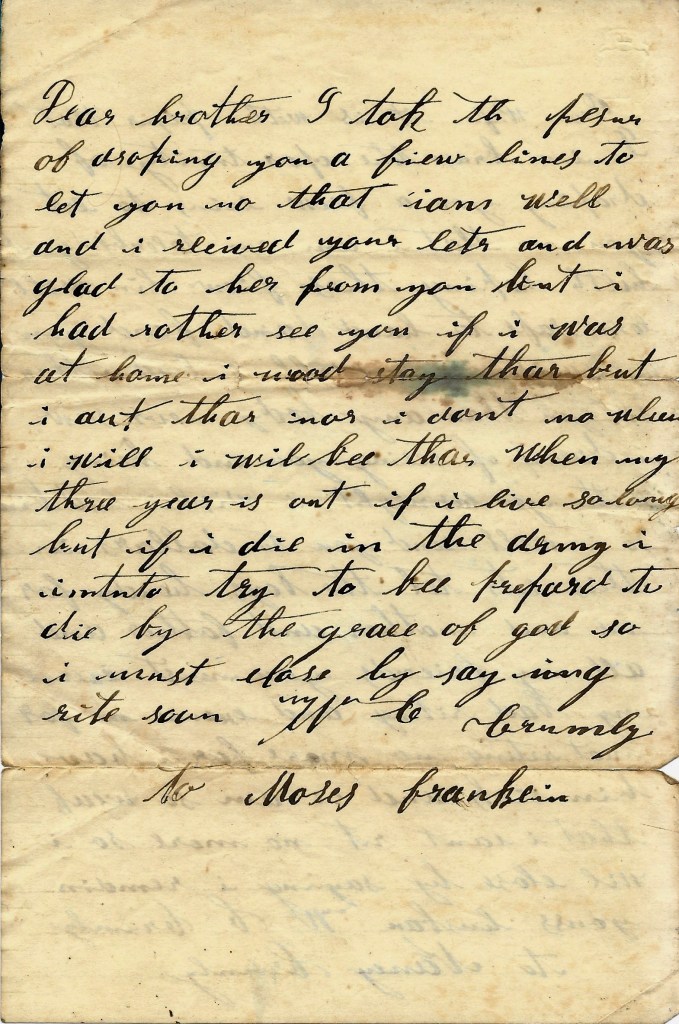 Dear brother I tak th plesur
of droping you a fiew lines to
let you no that iam well
and i reived your letr and was
glad to her from you but i
had rother see you if i was
at home i wood stay thar but
i ant thar nor i dont no when
i will i wil bee thar When my
three year is out if i live so long
but if i die in the army i
intnto try to bee prepard to
die by the grace of god so
i must close by say ing
rite soon Wm C Crumly
to Moses franklin